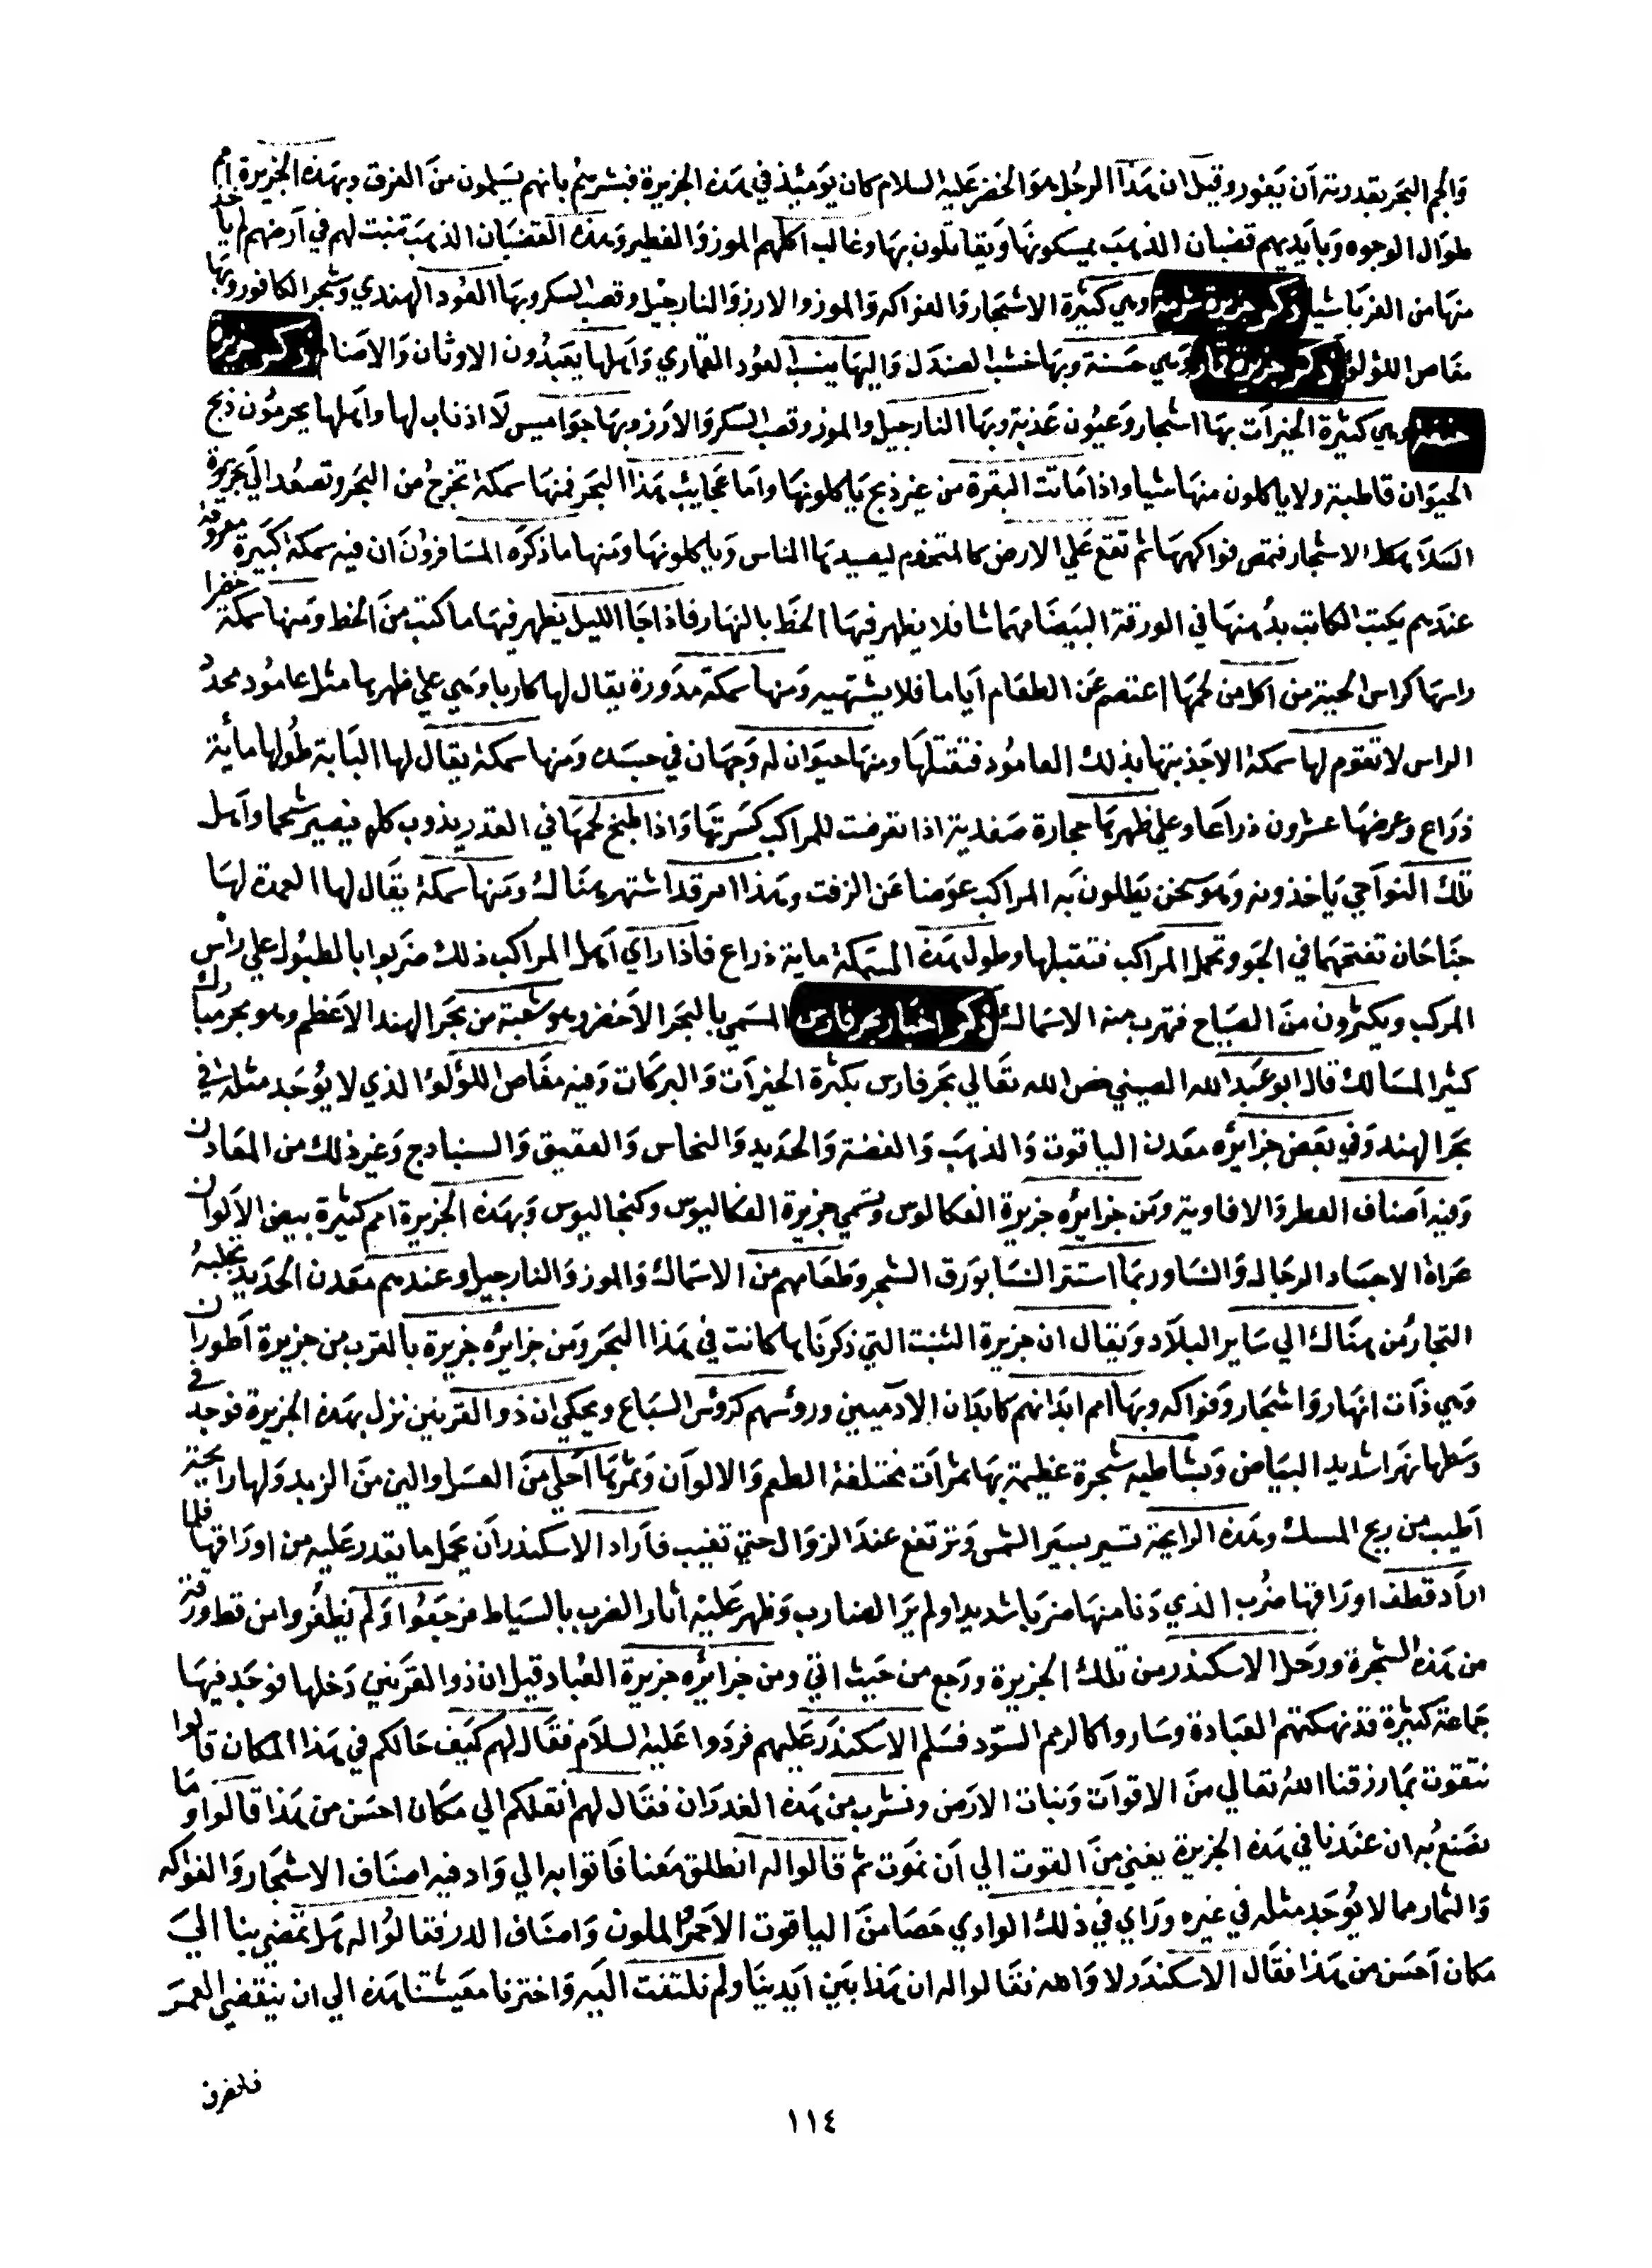 والجم البحر بقدرته ان يفور وقيل ان هذا الرجل هو الخضر عليه السلام كان يوميئذ في هذه الجزيرة فبشرهم بانهم يسلمون من الغرق وبهذه الجزيرة امم
طوال الوجوه وبايديهم قضبان الذهب يمسكونها ويقاتلون بها وغالب اكلهم الموز والفطير وهذه القضبان الذهب تنبت لهم في ارضهم لم ياخذ
منها من الغربا شيا ذكر جزيرة وهي كثيرة الاشجار والفواكه والموز والارز والنارجيل وقصب السكر وبها العود الهندي وشجر الكافور وبها
مغاص اللؤلؤ ذكر جزيرة قمار وهي حسنة وبها خشب الصندل واليها ينسب العود القماري واهلها يعبدون الاوثان والاصنام ذكر جزيرة
وهي كثيرة الخيرات بها اشجار وعيون عذبة وبها النارجيل والموز وقصب السكر والارز وبها جواميس لا اذناب لها واهلها يحرمون ذبح
الحيوان قاطبة ولا ياكلون منها شيا واذا ماتت البقرة من غير ذبح ياكلونها واما عجايب هذا البحر فمنها سمكة تخرج من البحر وتصعد الي جزيرة
السلاهط الاشجار فتمص فواكهها ثم تقع علي الارض كالمتخدم ليصيدها الناس وياكلونها ومنها ما ذكره المسافرون ان فيه سمكة كبيرة معروفة
عندهم يكتب الكاتب بدمنها في الورقة البيضا مهما شا فلا يظهر فيها الخط بالنهار فاذا جا الليل يظهر فيها ما كتب من الخط ومنها سمكة خضرا
راسها كراس الحية من اكل من لحمها اعتصم عن الطعام اياما فلا يشتهيه ومنها سمكة مدورة يقال لها كاربا وهي علي ظهرها مثل عامود محد
الراس لا تقوم لها سمكة الا جذبتها بذلك العامود فتقتلها ومنها حيوان له وجهان في جسده ومنها سمكة يقال لها البابة طولها ماية
ذراع وعرضها عشرون ذراعا وعلي ظهرها حجارة صفدية اذا تعرضت للمراكب كسرتها واذا طبخ لحمها في القدر يذوب كله فيصير شحما واهل
تلك النواحي ياخذونه وهو سخن يطلون به المراكب عوضا عن الزفت وهذا امر قد اشتهر هناك ومنها سمكة يقال لها العمدة لها
جناحان تفتحهما في الجو وتحمل المراكب فتقبلها وطول هذه السمكة ماية ذراع فاذا راي اهل المراكب ذلك ضربوا بالطبول علي راس
المركب ويكثرون من الصياح فتهرب منه الاسماك ذكر اخبار بحر فارس المسمي بالبحر الاخضر وهو شعبة من بحر الهند الاعظم وهو بحر مبارك
كثير المسالك قال ابو عبد الله الصيني خص الله تعالي بحر فارس بكثرة الخيرات والبركات وفيه مغاص اللؤلؤ الذي لا يوجد مثله في
بحر الهند وفي بعض جزايره معدن الياقوت والذهب والفضة والحديد والنحاس والعقيق والسنبادج وغير ذلك من المعادن
وفيه اصناف العطر والافاوية ومن جزايره جزيرة الفكالوس وتسمي جزيرة الفكاليوس وكنجاليوس وبهذه الجزيرة امم كثيرة بيض الالوان
عراة الاجساد الرجال والنسا وربما استتر النسا بورق الشجر وطعامهم من الاسماك والموز والنارجيل وعندهم معدن الحديد تجلبه
التجار من هناك الي ساير البلاد ويقال ان جزيرة التنت التي ذكرناها كانت في هذا البحر ومن جزايره جزيرة بالقرب من جزيرة اطوران
وهي ذات انهار واشجار وفواكه وبها امم ابدانهم كابدان الادميين وروسهم كروس السباع ويحكي ان ذو القرنين نزل بهذه الجزيرة فوجد في
وسطها نهرا شديد البياض وبشاطيه شجرة عظيمة بها ثمرات مختلفة الطعم والالوان وثمرها احلي من العسل والين من الزبد ولها رايحة
اطيب من ريح المسك وهذه الرايحة تسير بسير الشمس وترتفع عند الزوال حتي تغيب فاراد الاسكندر ان يحمل ما يقدر عليه من اوراقها فلما
اراد قطف اوراقها ضرب الذي دنا منها ضربا شديدا ولم ير الضارب وظهر عليه اثار الضرب بالسياط فرجعوا ولم يظفروا من قط ورقة
من هذه الشجرة ورحل الاسكندر من تلك الجزيرة ورجع من حيث اتي ومن جزايره جزيرة العباد قيل ان ذو القرنين دخلها فوجد فيها
جماعة كثيرة قد نهكتهم العبادة وساروا كالرمم السود فسلم الاسكندر عليهم فردوا عليه السلام فقال لهم كيف حالكم في هذا المكان قالوا
نتقوت بما رزقنا الله تعالي من الاقوات ونبات الارض ونشرب من هذه الغدران فقال لهم انقلكم الي مكان احسن من هذا قالوا وما
نصنع به ان عندنا في هذه الجزيرة يغني من القوت الي ان نموت ثم قالوا له انطلق معنا فاتوا به الي واد فيه اصناف الاشجار والفواكه
والثمار مما لا يوجد مثله في غيره وراي في ذلك الوادي حصا من الياقوت الاحمر الملون واصناف الدر فقالوا له هل تمضي بنا الي
مكان احسن من هذا فقال الاسكندر لا والله فقالوا له ان هذا بين ايدينا ولم نلتفت اليه واخترنا معيشتنا هذه الي ان ينقضي العمر
فانفرن
١١٤